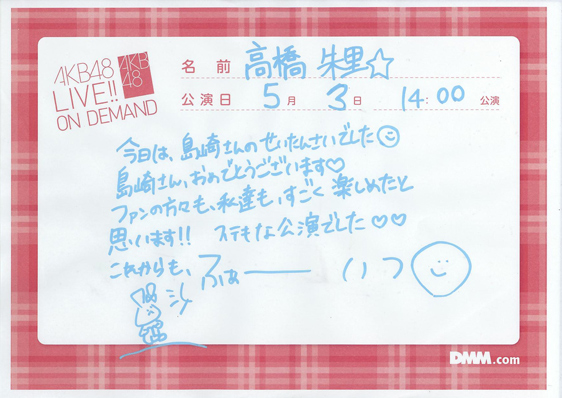 AKB48
LIVE!!
ON DEMAND
AKB
48
名前 高橋 朱里☆
公演日 5月 3日 14:00 公演
今日は、島崎さんのせいたんさいでした
島崎さん、おめでとうございます♡
ファンの方々も、私達も、すごく楽しめたと
思います!! ステキな公演でした♡♡
これからも、ふぁーー いつ
DMM.com